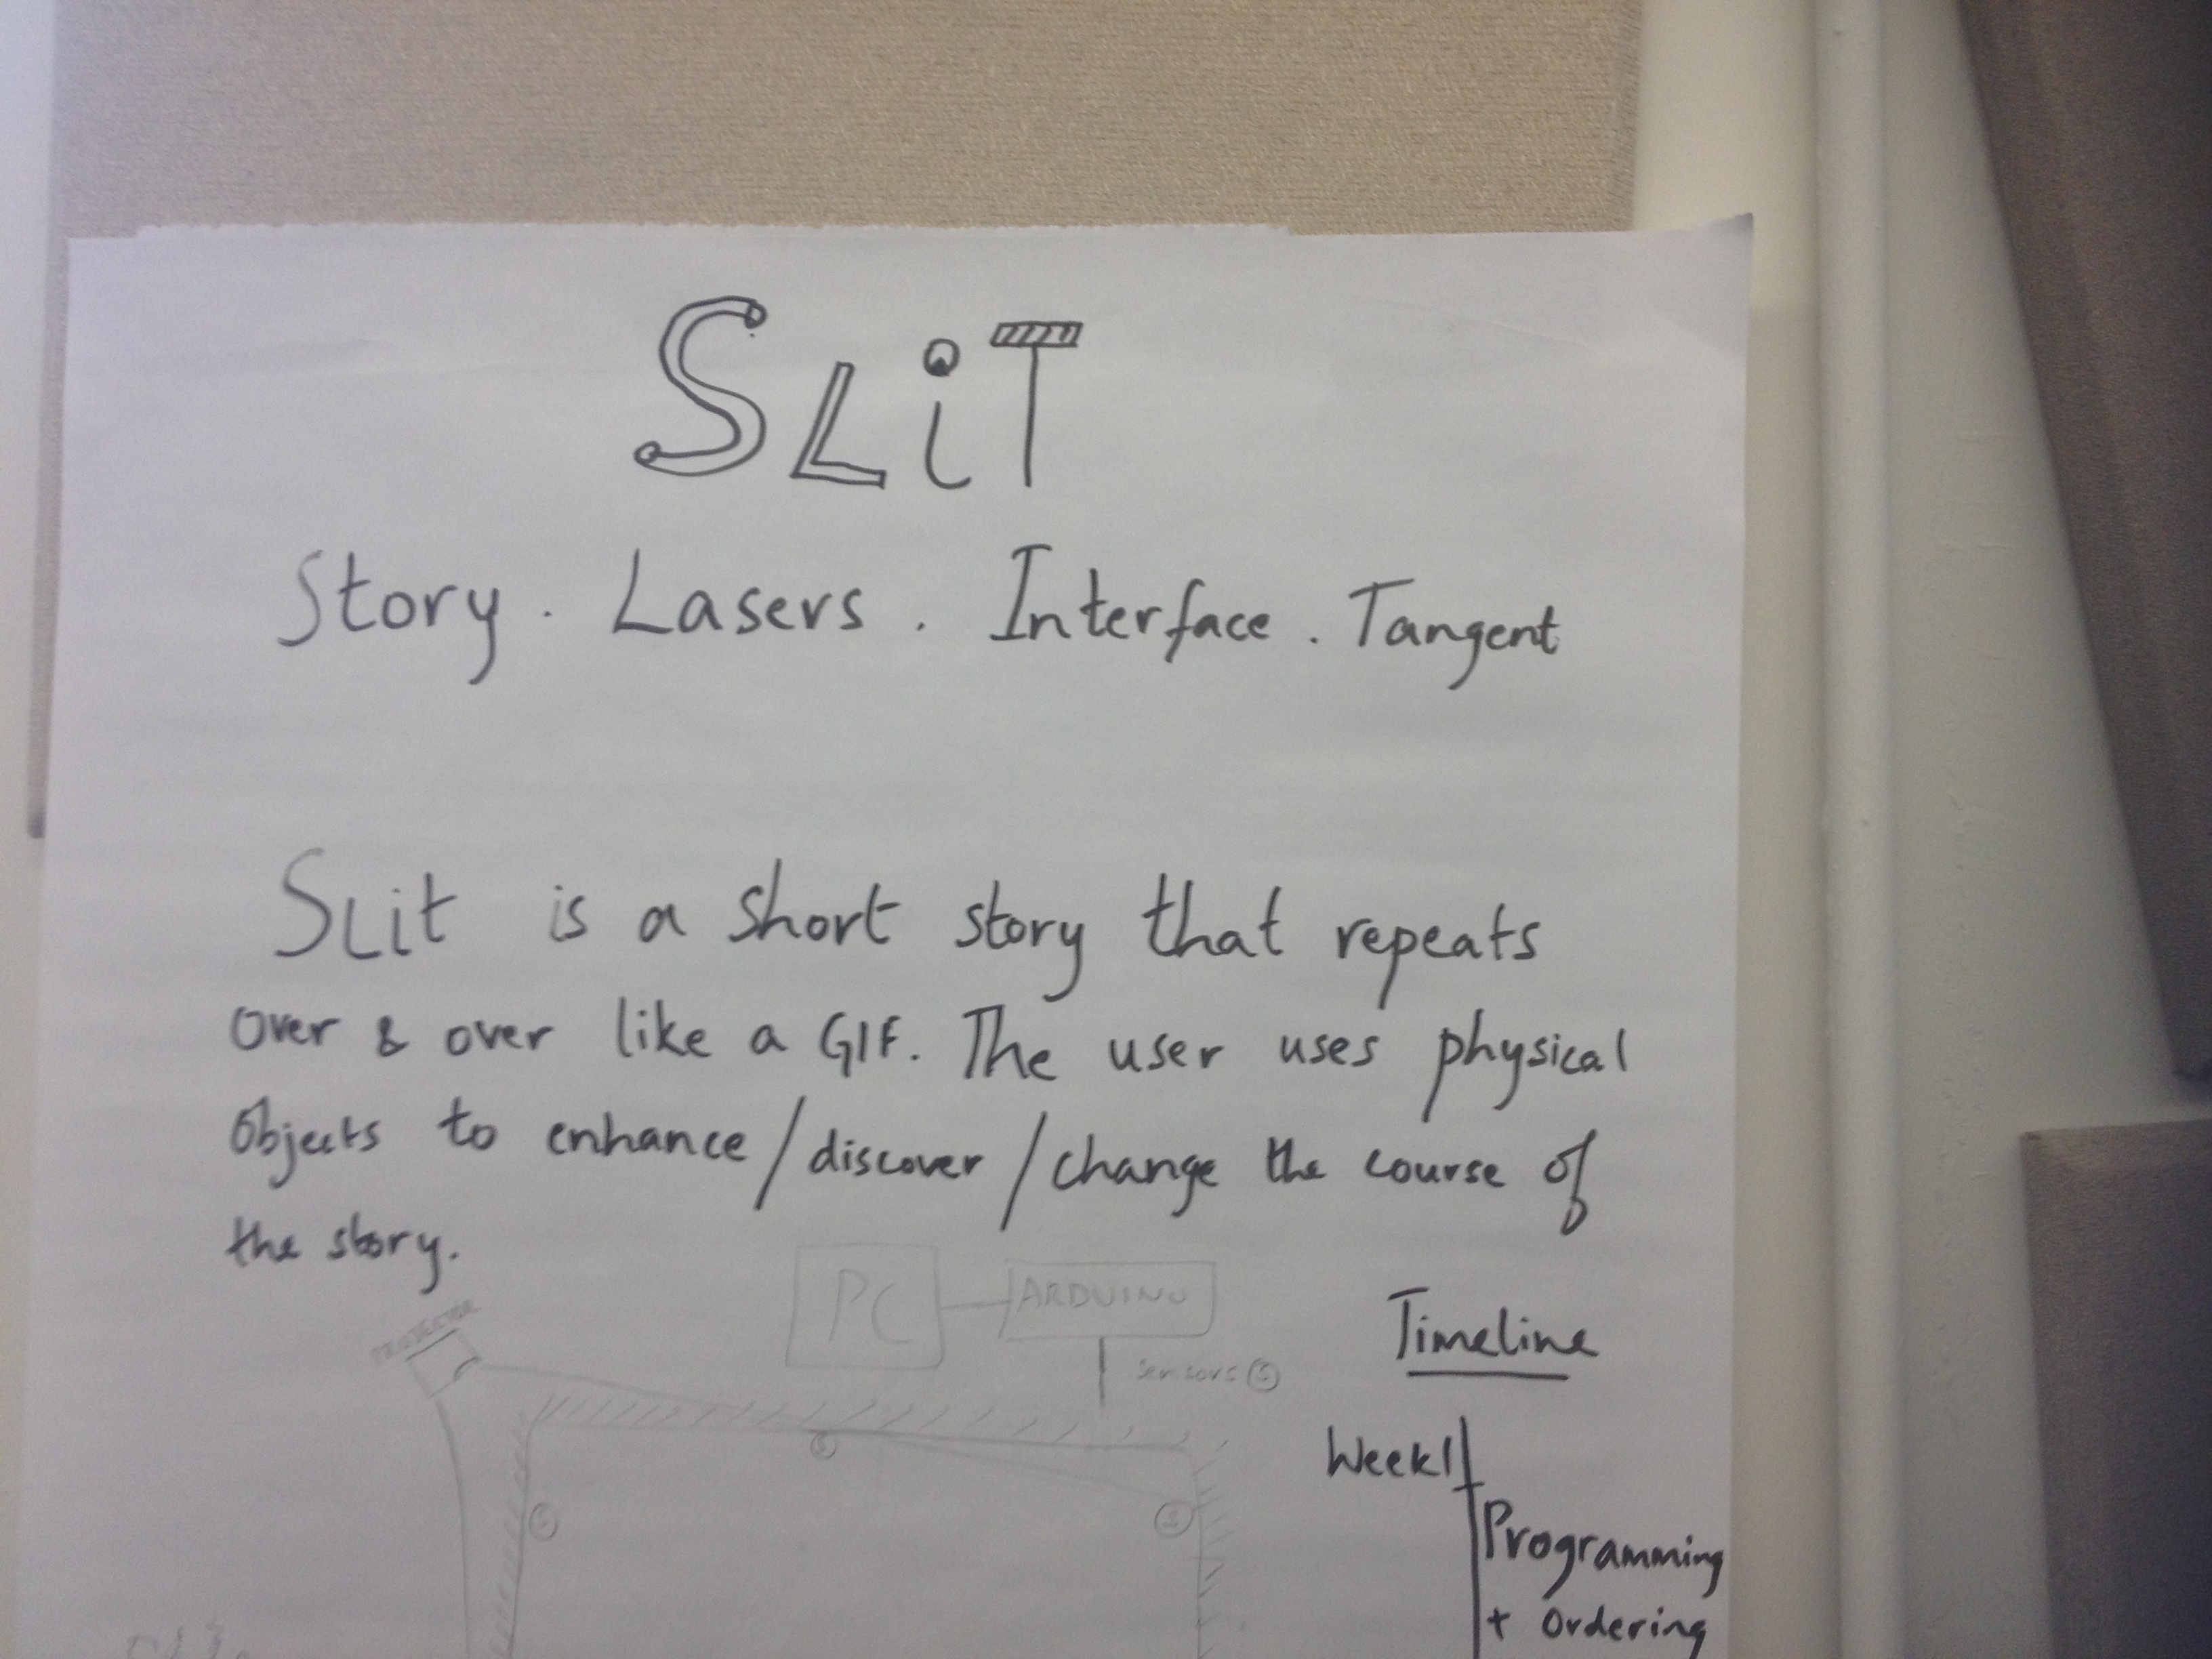 SLiT
Story . Lasers . Interface . Tangent
SLit is a short story that repeats
over & over like a GIF. The user uses physical
objects to enhance / discover / change the course of
the story.
PROJECTOR
PC
ARDUINO
Sensors Ⓢ
Ⓢ
Ⓢ
Ⓢ
Timeline
Week 1
Programming
+ Ordering